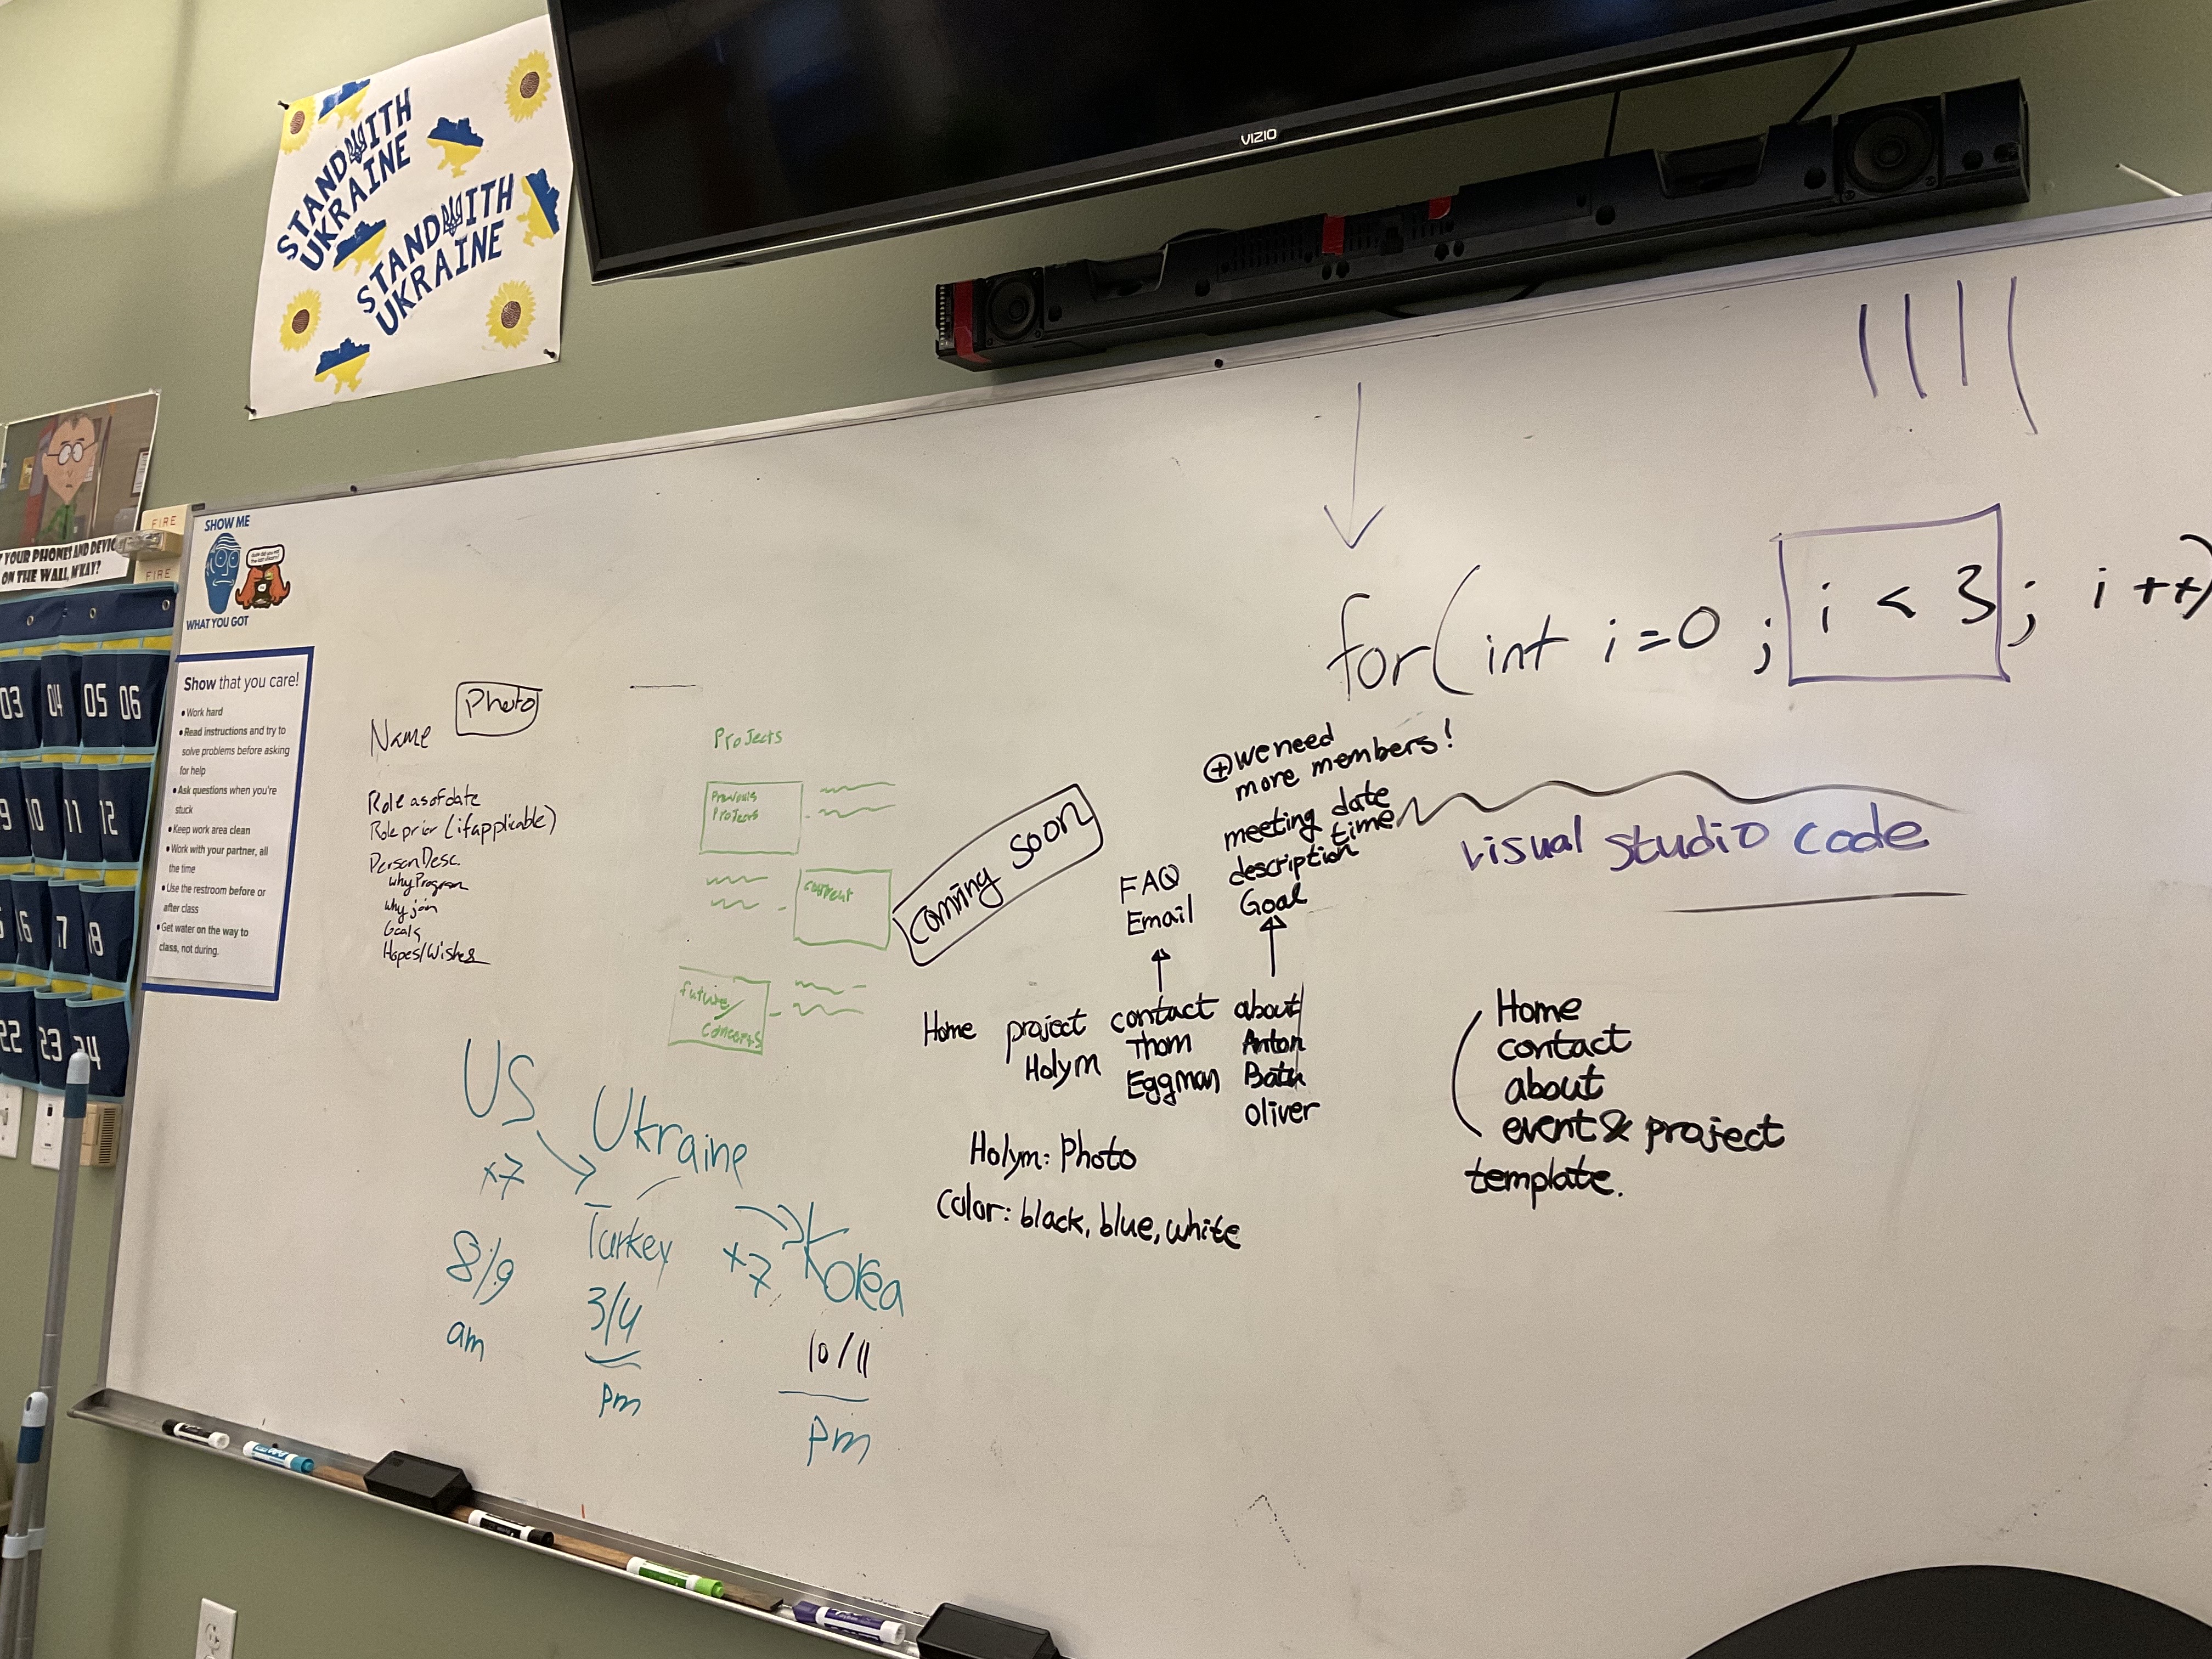 STAND WITH
UKRAINE
STAND WITH
UKRAINE
VIZIO
YOUR PHONES AND DEVIC
ON THE WALL, M'KAY?
FIRE
FIRE
SHOW ME
WHAT YOU GOT
Show that you care!
• Work hard
• Read instructions and try to
solve problems before asking
for help
• Ask questions when you're
stuck
• Keep work area clean
• Work with your partner, all
the time
• Use the restroom before or
after class
• Get water on the way to
class, not during.
03 04 05 06
9 10 11 12
16 17 18
22 23 24
Name
Photo
Role as of date
Role prior (if applicable)
Person Desc.
Why Program
Why join
Goals
Hopes/Wishes
Projects
Previous
Projects
current
future
concepts
Comming soon
for(int i=0 ; i < 3; i ++)
+ we need
more members!
meeting date
time
description
Goal
FAQ
Email
visual studio code
Home project contact about
Holym
Thom
Eggman
Anton
Batu
oliver
Holym: Photo
Color: black, blue, white
Home
contact
about
event & project
template.
US
Ukraine
+7
Turkey
+7
Korea
8/9
am
3/4
pm
10/11
pm